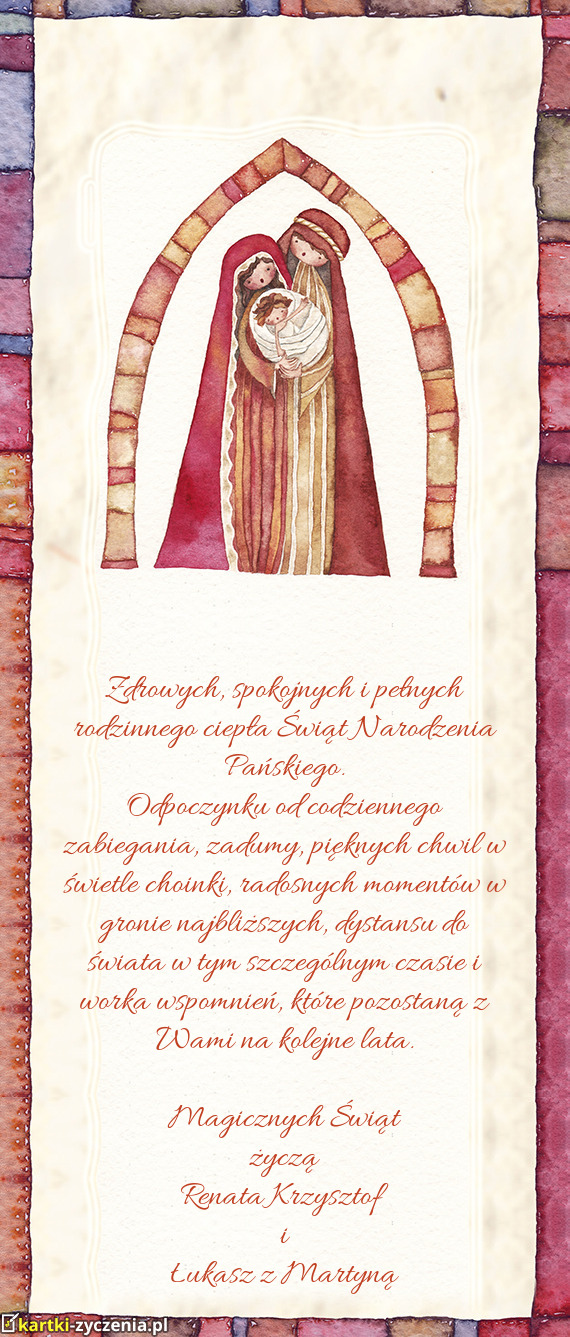 Zdrowych, spokojnych i pełnych
rodzinnego ciepła Świąt Narodzenia
Pańskiego.
Odpoczynku od codziennego
zabiegania, zadumy, pięknych chwil w
świetle choinki, radosnych momentów w
gronie najbliższych, dystansu do
świata w tym szczególnym czasie i
worka wspomnień, które pozostaną z
Wami na kolejne lata.
Magicznych Świąt
życzą
Renata Krzysztof
i
Łukasz z Martyną
kartki-zyczenia.pl